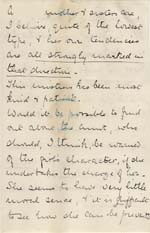 A mother & sisters are I believe quite of the lowest
type, & his own tendencies
are all strongly marked in
that direction.
This mistress has been most
kind & patient.
Would it be possible to find
out alone the aunt, who
should, I think, be warned
of the girl's character, if she
undertakes the charge of her.
She seems to have very little
moral sense, & it is difficult
to see how she can be prevented